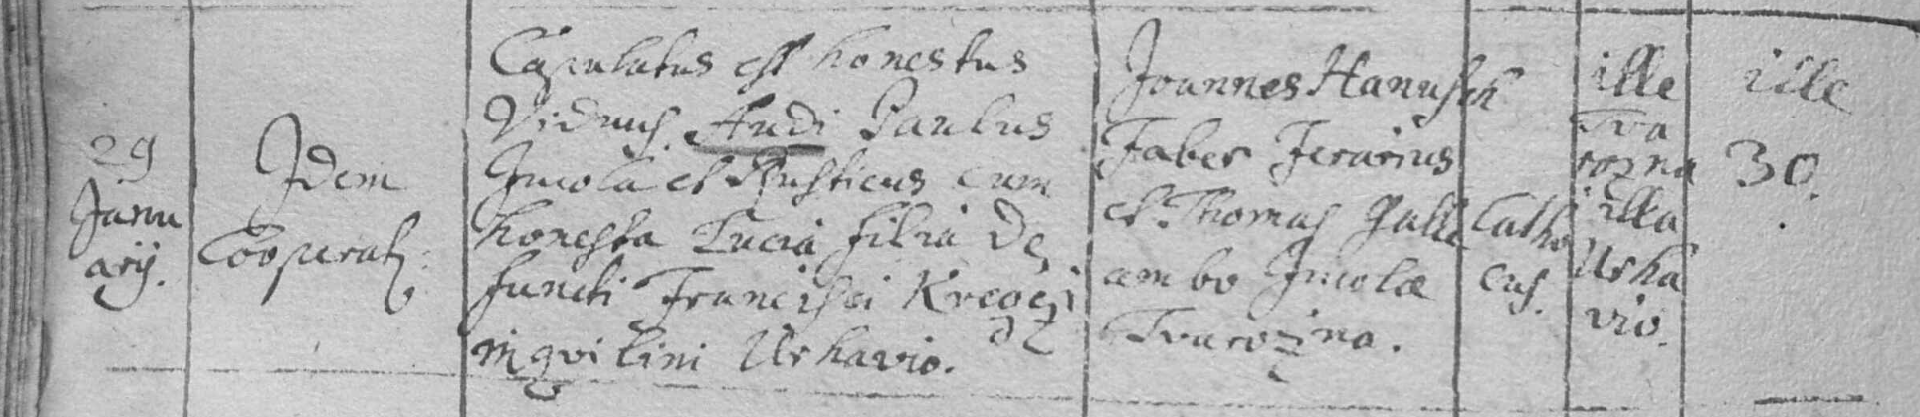 29
Janu
arÿ.
Idem
Cooperat:
Copulatus est honestus
Viduus. Andi Paulus
Incola et Rusticus cum
honesta Lucia filia De
functi Francisci
inqvilini Urhavio.
Joannes Hanusek
Faber Ferarius
et Thomas Gulli
ambo Incolæ
Tvarozna.
Catho
cus.
ille
Tva
rozna
illa
Urha
vio.
ille
30.